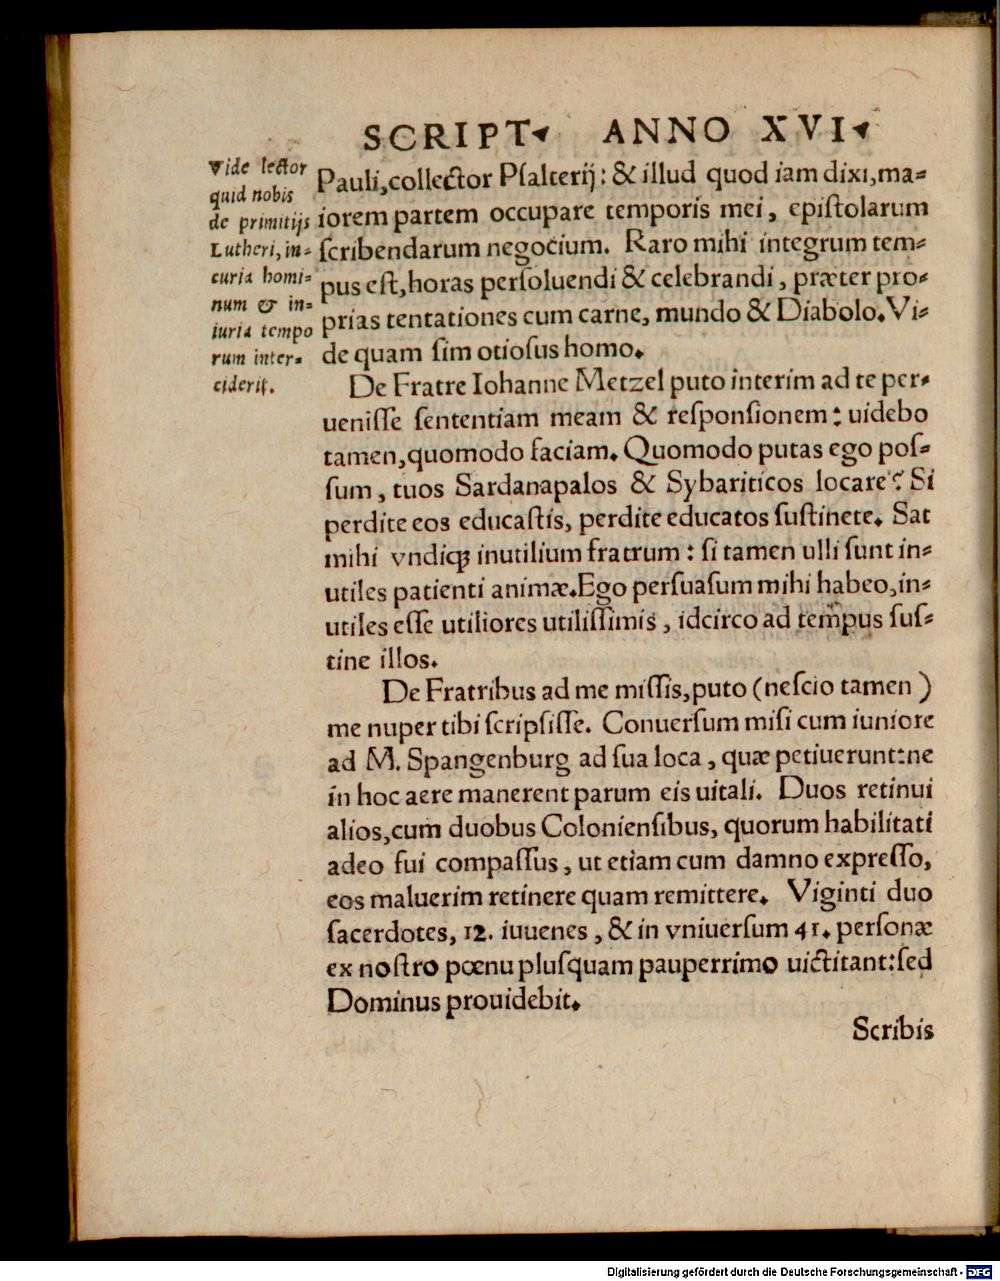 SCRIPT. ANNO XVI.
Vide lector
quid nobis
de primitijs
Lutheri, in-
curia homi-
num & in-
iuria tempo
rum inter-
ciderit.
Pauli, collector Pſalterij: & illud quod iam dixi, ma-
iorem partem occupare temporis mei, epiſtolarum
ſcribendarum negocium. Raro mihi integrum tem-
pus eſt, horas perſoluendi & celebrandi, præter pro-
prias tentationes cum carne, mundo & Diabolo. Vi-
de quam ſim otioſus homo.
De Fratre Iohanne Metzel puto interim ad te per-
ueniſſe ſententiam meam & reſponſionem: uidebo
tamen, quomodo faciam. Quomodo putas ego poſ-
ſum, tuos Sardanapalos & Sybariticos locare? Si
perdite eos educaſtis, perdite educatos ſuſtinete. Sat
mihi vndiq; inutilium fratrum: ſi tamen ulli ſunt in-
utiles patienti animæ. Ego perſuaſum mihi habeo, in-
utiles eſſe utiliores utiliſſimis, idcirco ad tempus ſuſ-
tine illos.
De Fratribus ad me miſſis, puto (neſcio tamen)
me nuper tibi ſcripſiſſe. Conuerſum miſi cum iuniore
ad M. Spangenburg ad ſua loca, quæ petiuerunt: ne
in hoc aere manerent parum eis uitali. Duos retinui
alios, cum duobus Colonienſibus, quorum habilitati
adeo fui compaſſus, ut etiam cum damno expreſſo,
eos maluerim retinere quam remittere. Viginti duo
ſacerdotes, 12. iuuenes, & in vniuerſum 41. perſonæ
ex noſtro pœnu pluſquam pauperrimo uictitant: ſed
Dominus prouidebit.
Scribis
Digitalisierung gefördert durch die Deutsche Forschungsgemeinschaft - DFG